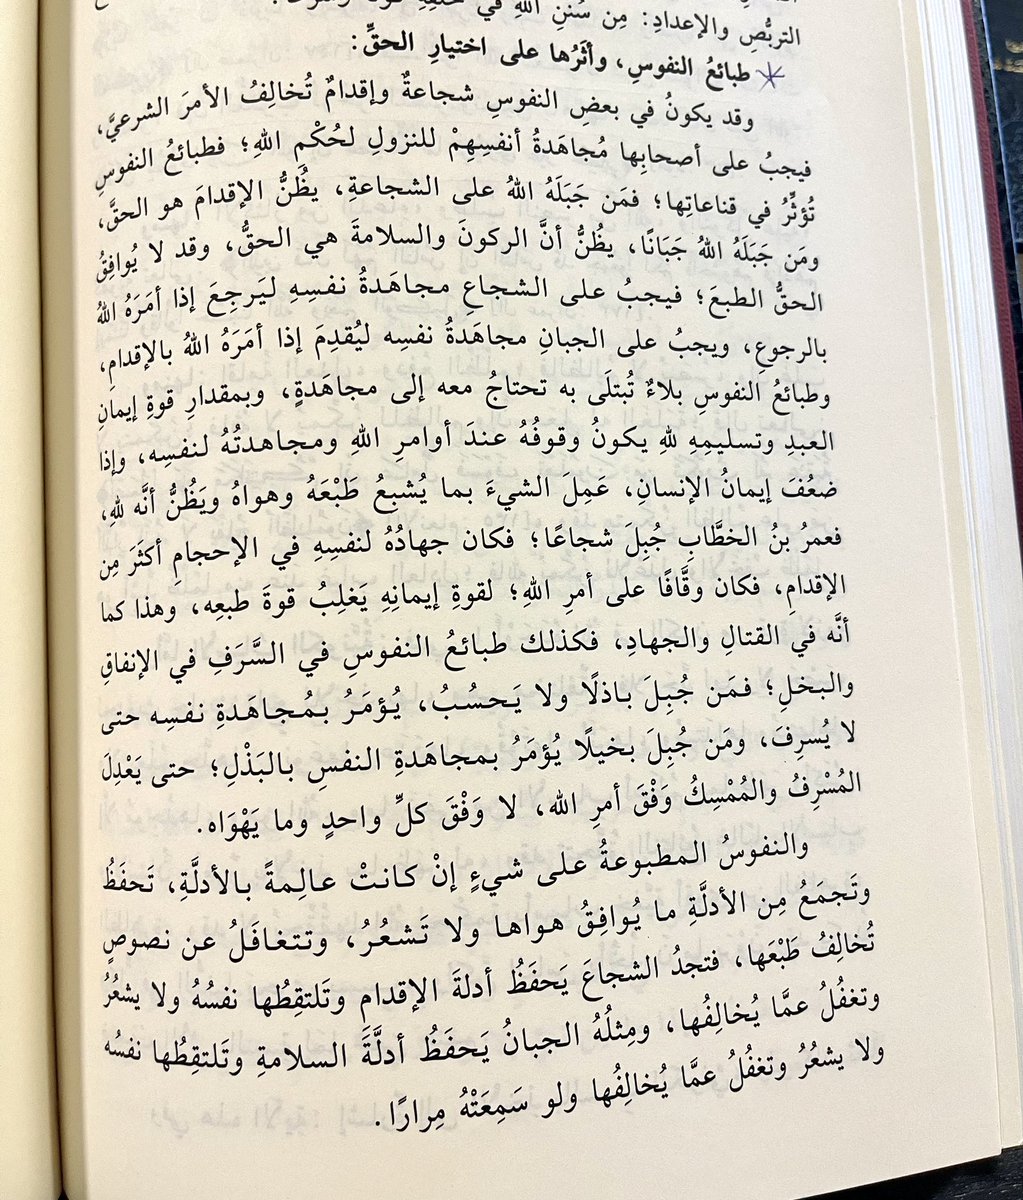 التربُّصِ والإعدادِ: مِن سُنَنِ اللهِ في
طبائعُ النفوسِ، وأثَرُها على اختيارِ الحقِّ:
وقد يكونُ في بعضِ النفوسِ شجاعةٌ وإقدامٌ تُخالِفُ الأمرَ الشرعيَّ،
فيجبُ على أصحابِها مُجاهَدةُ أنفسِهِمْ للنزولِ لحُكْمِ اللهِ؛ فطبائعُ النفوسِ
تُؤثِّرُ في قناعاتِها؛ فمَن جَبَلَهُ اللهُ على الشجاعةِ، يظُنُّ الإقدامَ هو الحقَّ،
ومَن جَبَلَهُ اللهُ جَبَانًا، يظُنُّ أنَّ الركونَ والسلامةَ هي الحقُّ، وقد لا يُوافِقُ
الحقُّ الطبعَ؛ فيجبُ على الشجاعِ مجاهَدةُ نفسِهِ ليَرجِعَ إذا أمَرَهُ اللهُ
بالرجوعِ، ويجبُ على الجبانِ مجاهَدةُ نفسِه ليُقدِمَ إذا أمَرَهُ اللهُ بالإقدامِ،
وطبائعُ النفوسِ بلاءٌ تُبتلَى به تحتاجُ معه إلى مجاهَدةٍ، وبمقدارِ قوةِ إيمانِ
العبدِ وتسليمِهِ للهِ يكونُ وقوفُهُ عندَ أوامرِ اللهِ ومجاهدتُهُ لنفسِه، وإذا
ضعُفَ إيمانُ الإنسانِ، عَمِلَ الشيءَ بما يُشبِعُ طَبْعَهُ وهواهُ ويَظُنُّ أنَّه للهِ،
فعمرُ بنُ الخطَّابِ جُبِلَ شجاعًا؛ فكان جهادُهُ لنفسِهِ في الإحجامِ أكثَرَ مِن
الإقدامِ، فكان وقَّافًا على أمرِ اللهِ؛ لقوةِ إيمانِهِ يَغلِبُ قوةَ طبعِه، وهذا كما
أنَّه في القتالِ والجهادِ، فكذلك طبائعُ النفوسِ في السَّرَفِ في الإنفاقِ
والبخلِ؛ فمَن جُبِلَ باذلًا ولا يَحسُبُ، يُؤمَرُ بمُجاهَدةِ نفسِه حتى
لا يُسرِفَ، ومَن جُبِلَ بخيلًا يُؤمَرُ بمجاهَدةِ النفسِ بالبَذْلِ؛ حتى يَعْدِلَ
المُسْرِفُ والمُمْسِكُ وَفْقَ أمرِ الله، لا وَفْقَ كلِّ واحدٍ وما يَهْوَاه.
والنفوسُ المطبوعةُ على شيءٍ إنْ كانتْ عالِمةً بالأدلَّةِ، تَحفَظُ
وتَجمَعُ مِن الأدلَّةِ ما يُوافِقُ هواها ولا تَشعُرُ، وتتغافَلُ عن نصوصٍ
تُخالِفُ طَبْعَها، فتجدُ الشجاعَ يَحفَظُ أدلةَ الإقدامِ وتَلتقِطُها نفسُهُ ولا يشعُرُ
وتغفُلُ عمَّا يُخالِفُها، ومِثلُهُ الجبانُ يَحفَظُ أدلَّةَ السلامةِ وتَلتقِطُها نفسُه
ولا يشعُرُ وتغفُلُ عمَّا يُخالِفُها ولو سَمِعَتْهُ مِرارًا.